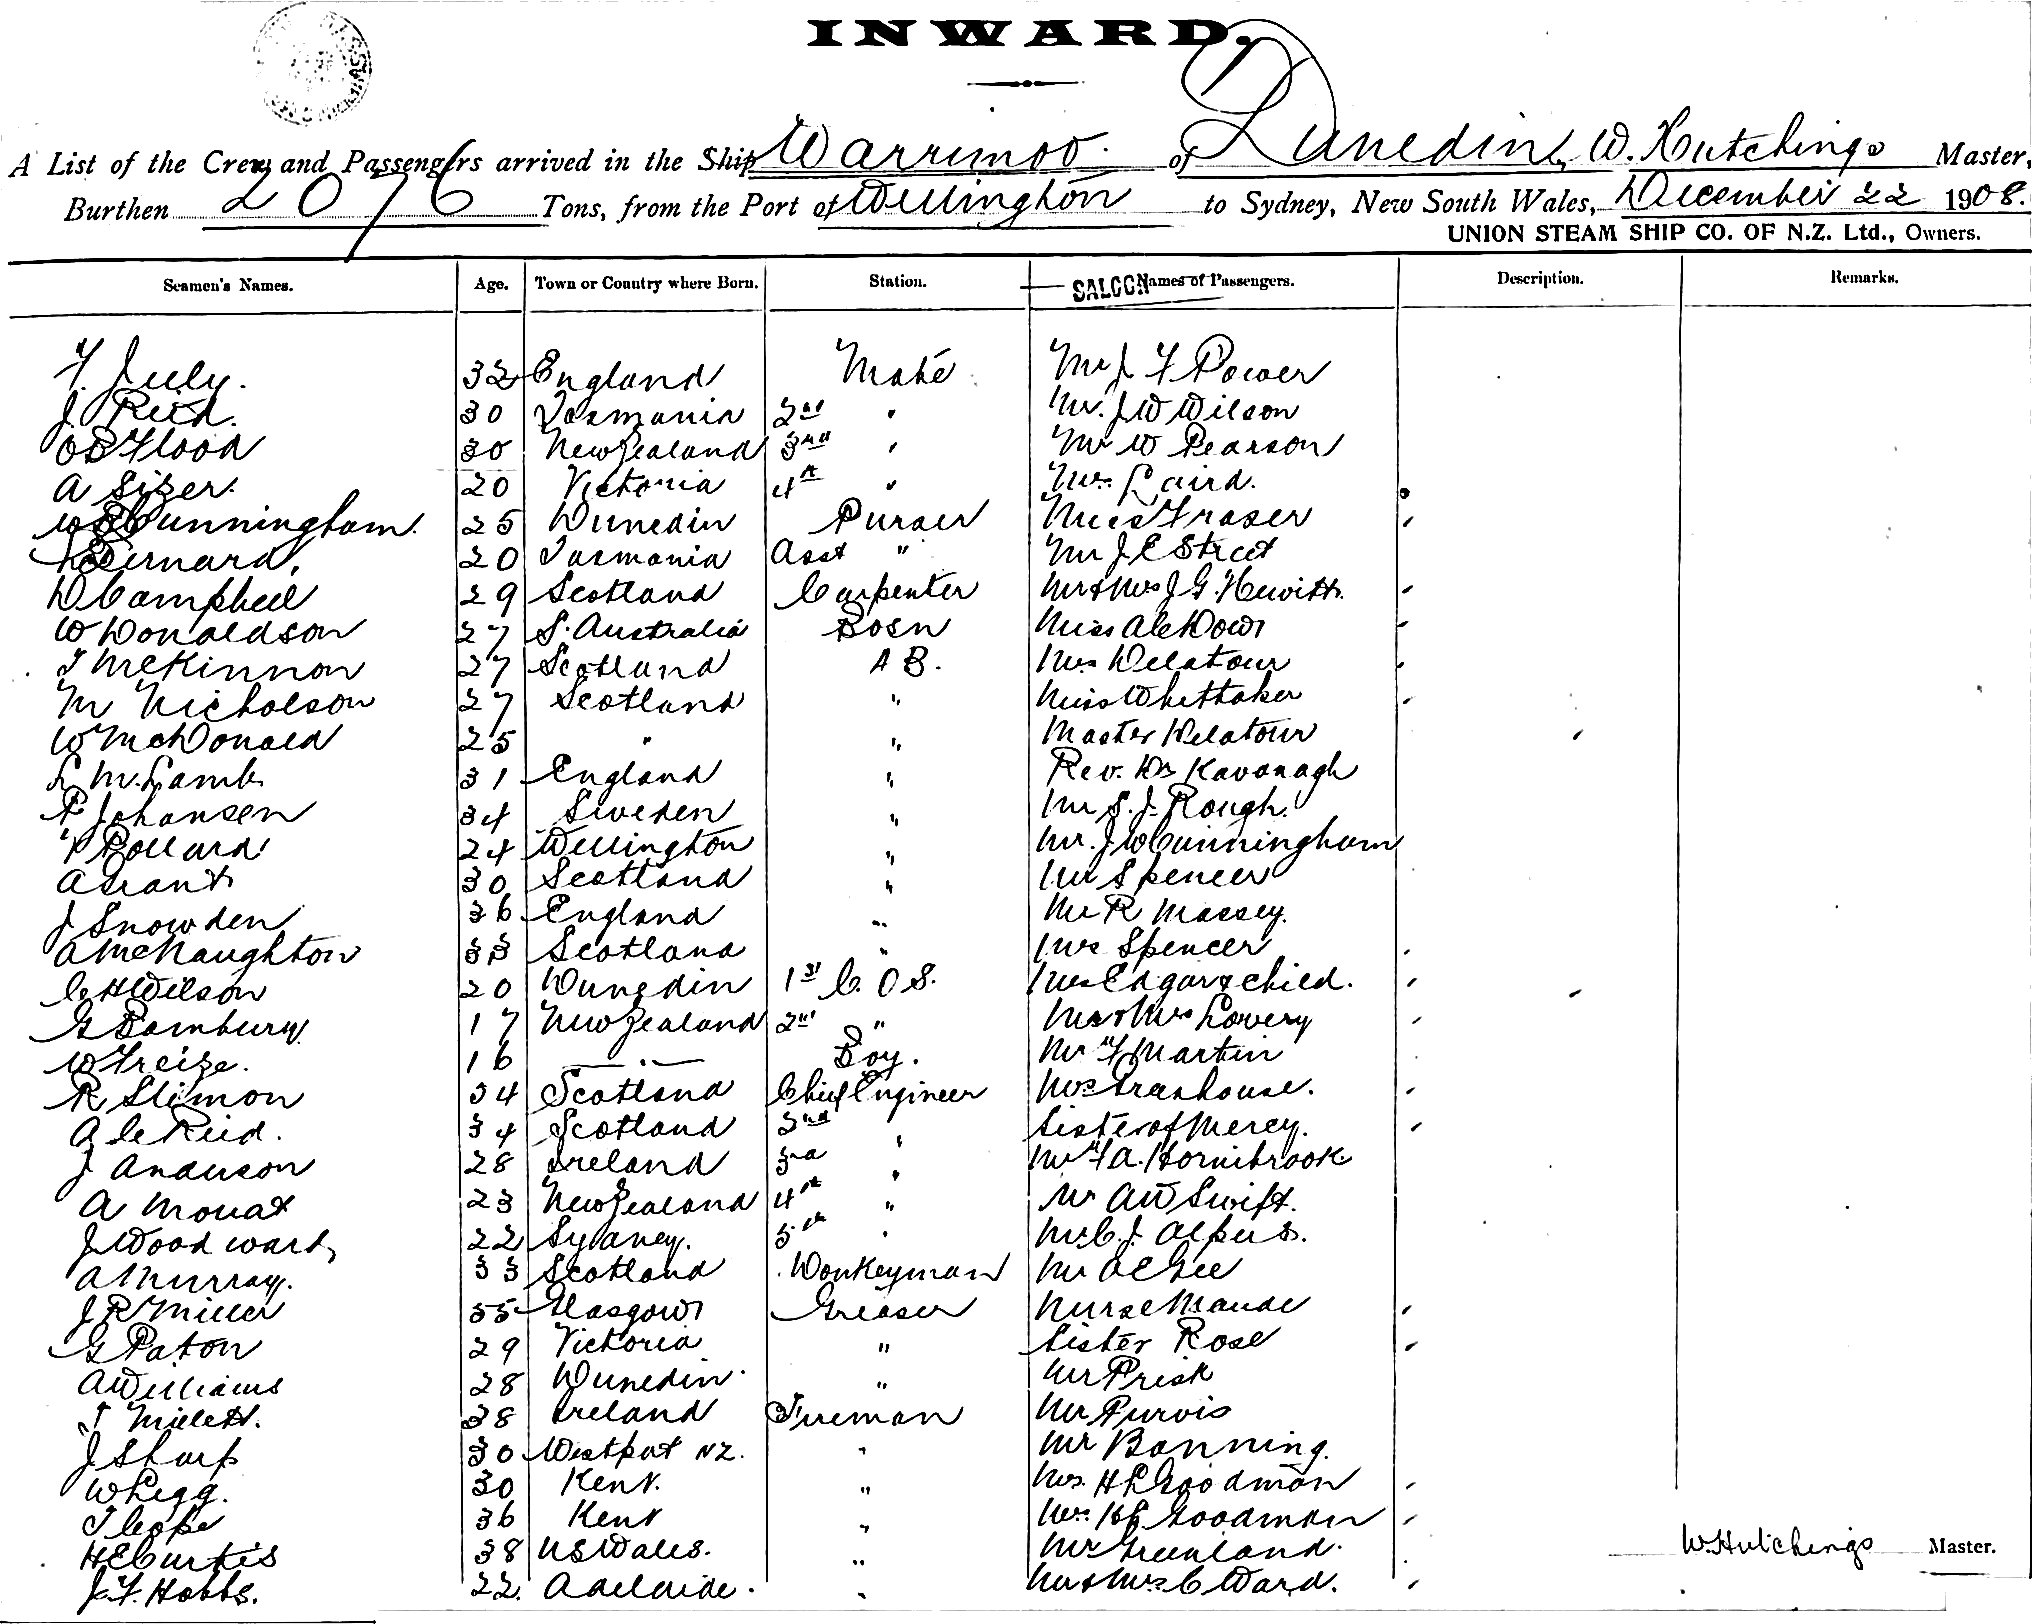 INWARD.
A List of the Crew and Passengers arrived in the Ship Warrimoo of Dunedin, W. Hutchings Master,
Burthen 2076 Tons, from the Port of Wellington to Sydney, New South Wales, December 22 1908.
UNION STEAM SHIP CO. OF N.Z. Ltd., Owners.
Seamen's Names. Age. Town or Country where Born. Station. SALOON Names of Passengers. Description. Remarks.
F. July. 32 England Mate Mr J F Power
J Reid. 30 Tasmania 2nd " Mr. J W Wilson
O B Flood 30 New Zealand 3rd " Mr W Pearson
A Sizer. 20 Victoria 4th " Mrs Laird.
W Cunningham. 25 Dunedin Purser Miss Fraser
Bernard. 20 Tasmania Asst " Mr J E Street
D Campbell 29 Scotland Carpenter Mr & Mrs J G. Hewitt.
W Donaldson 27 S. Australia Bosn Miss Dow
J McKinnon 27 Scotland A B. Mrs Delatour
M Nicholson 27 Scotland " Miss Whettaker
W McDonald 25 " " Master Delatour
L M. Lamb 31 England " Rev. Dr Kavanagh
P Johansen 34 Sweden " Mr S. J. Rough.
F Pollard 24 Wellington " Mr. J W Cunningham
A Grant 30 Scotland " Mr Spencer
J Snowden 36 England " Mr R Massey.
A McNaughton 33 Scotland " Mrs Spencer
C H Wilson 20 Dunedin 1st C. O S. Mrs Edgar & child.
G Bambury 17 New Zealand 2nd " Mr & Mrs Lowery
W Freize. 16 — " — Boy. Mr F Martin
R Slimon 34 Scotland Chief Engineer Mrs
A C Reid. 34 Scotland 2nd " Sister of Mercy.
J Anderson 28 Ireland 3rd " Mr F A. Hornibrook
A Mouat 23 New Zealand 4th " Mr A W Swift.
J Woodward 22 Sydney. 5th " Mr C. J. Alpers.
A Murray. 33 Scotland Donkeyman Mr A E Gee
J R Miller 35 Glasgow Greaser Nurse Maude
G Paton 29 Victoria " Sister Rose
A Williams 28 Dunedin " Mr Prisk
J Millett. 38 Ireland Fireman Mr Purvis
J Sharp 30 Westport NZ. " Mr Banning.
W Legg. 30 Kent. " Mrs. H L Goodman
J Cope 36 Kent " Goodman
H E Curtis 38 N S Wales. " Mr Greenland.
J. F. Hobbs. 22. Adelaide. " Mr & Mrs C Ward.
W. Hutchings Master.